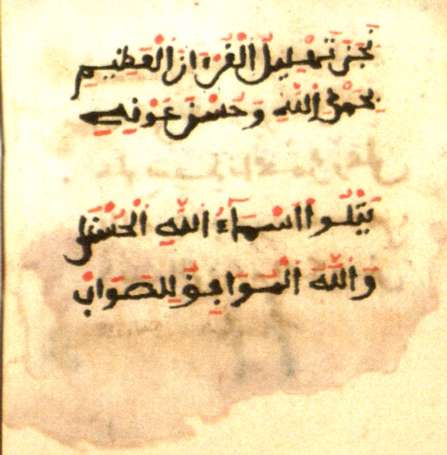 نجز تهليل القرءان العظيم
بحمد الله وحسن عونه
يتلوا اسماء الله الحسنى
والله الموافق للصواب